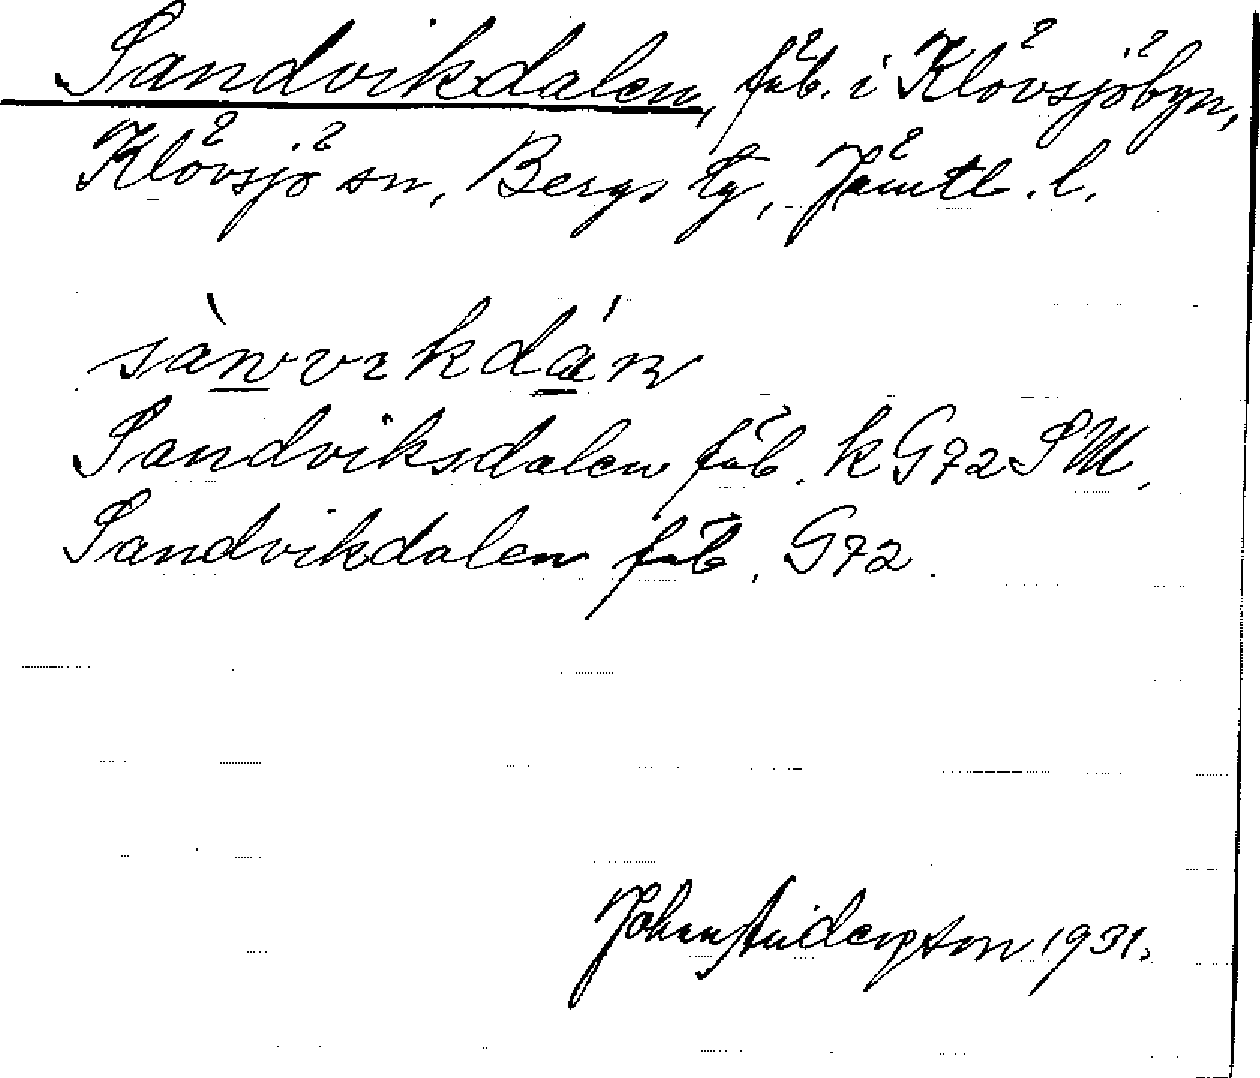 Sandvikdalen, fäb. i Klövsjöbyn,
Klövsjö sn, Bergs tg, Jämtl. l.
sànvvikdán
Sandviksdalen fäb. k G72 SM.
Sandvikdalen fäb. G72.
Johan Anderzson 1931.